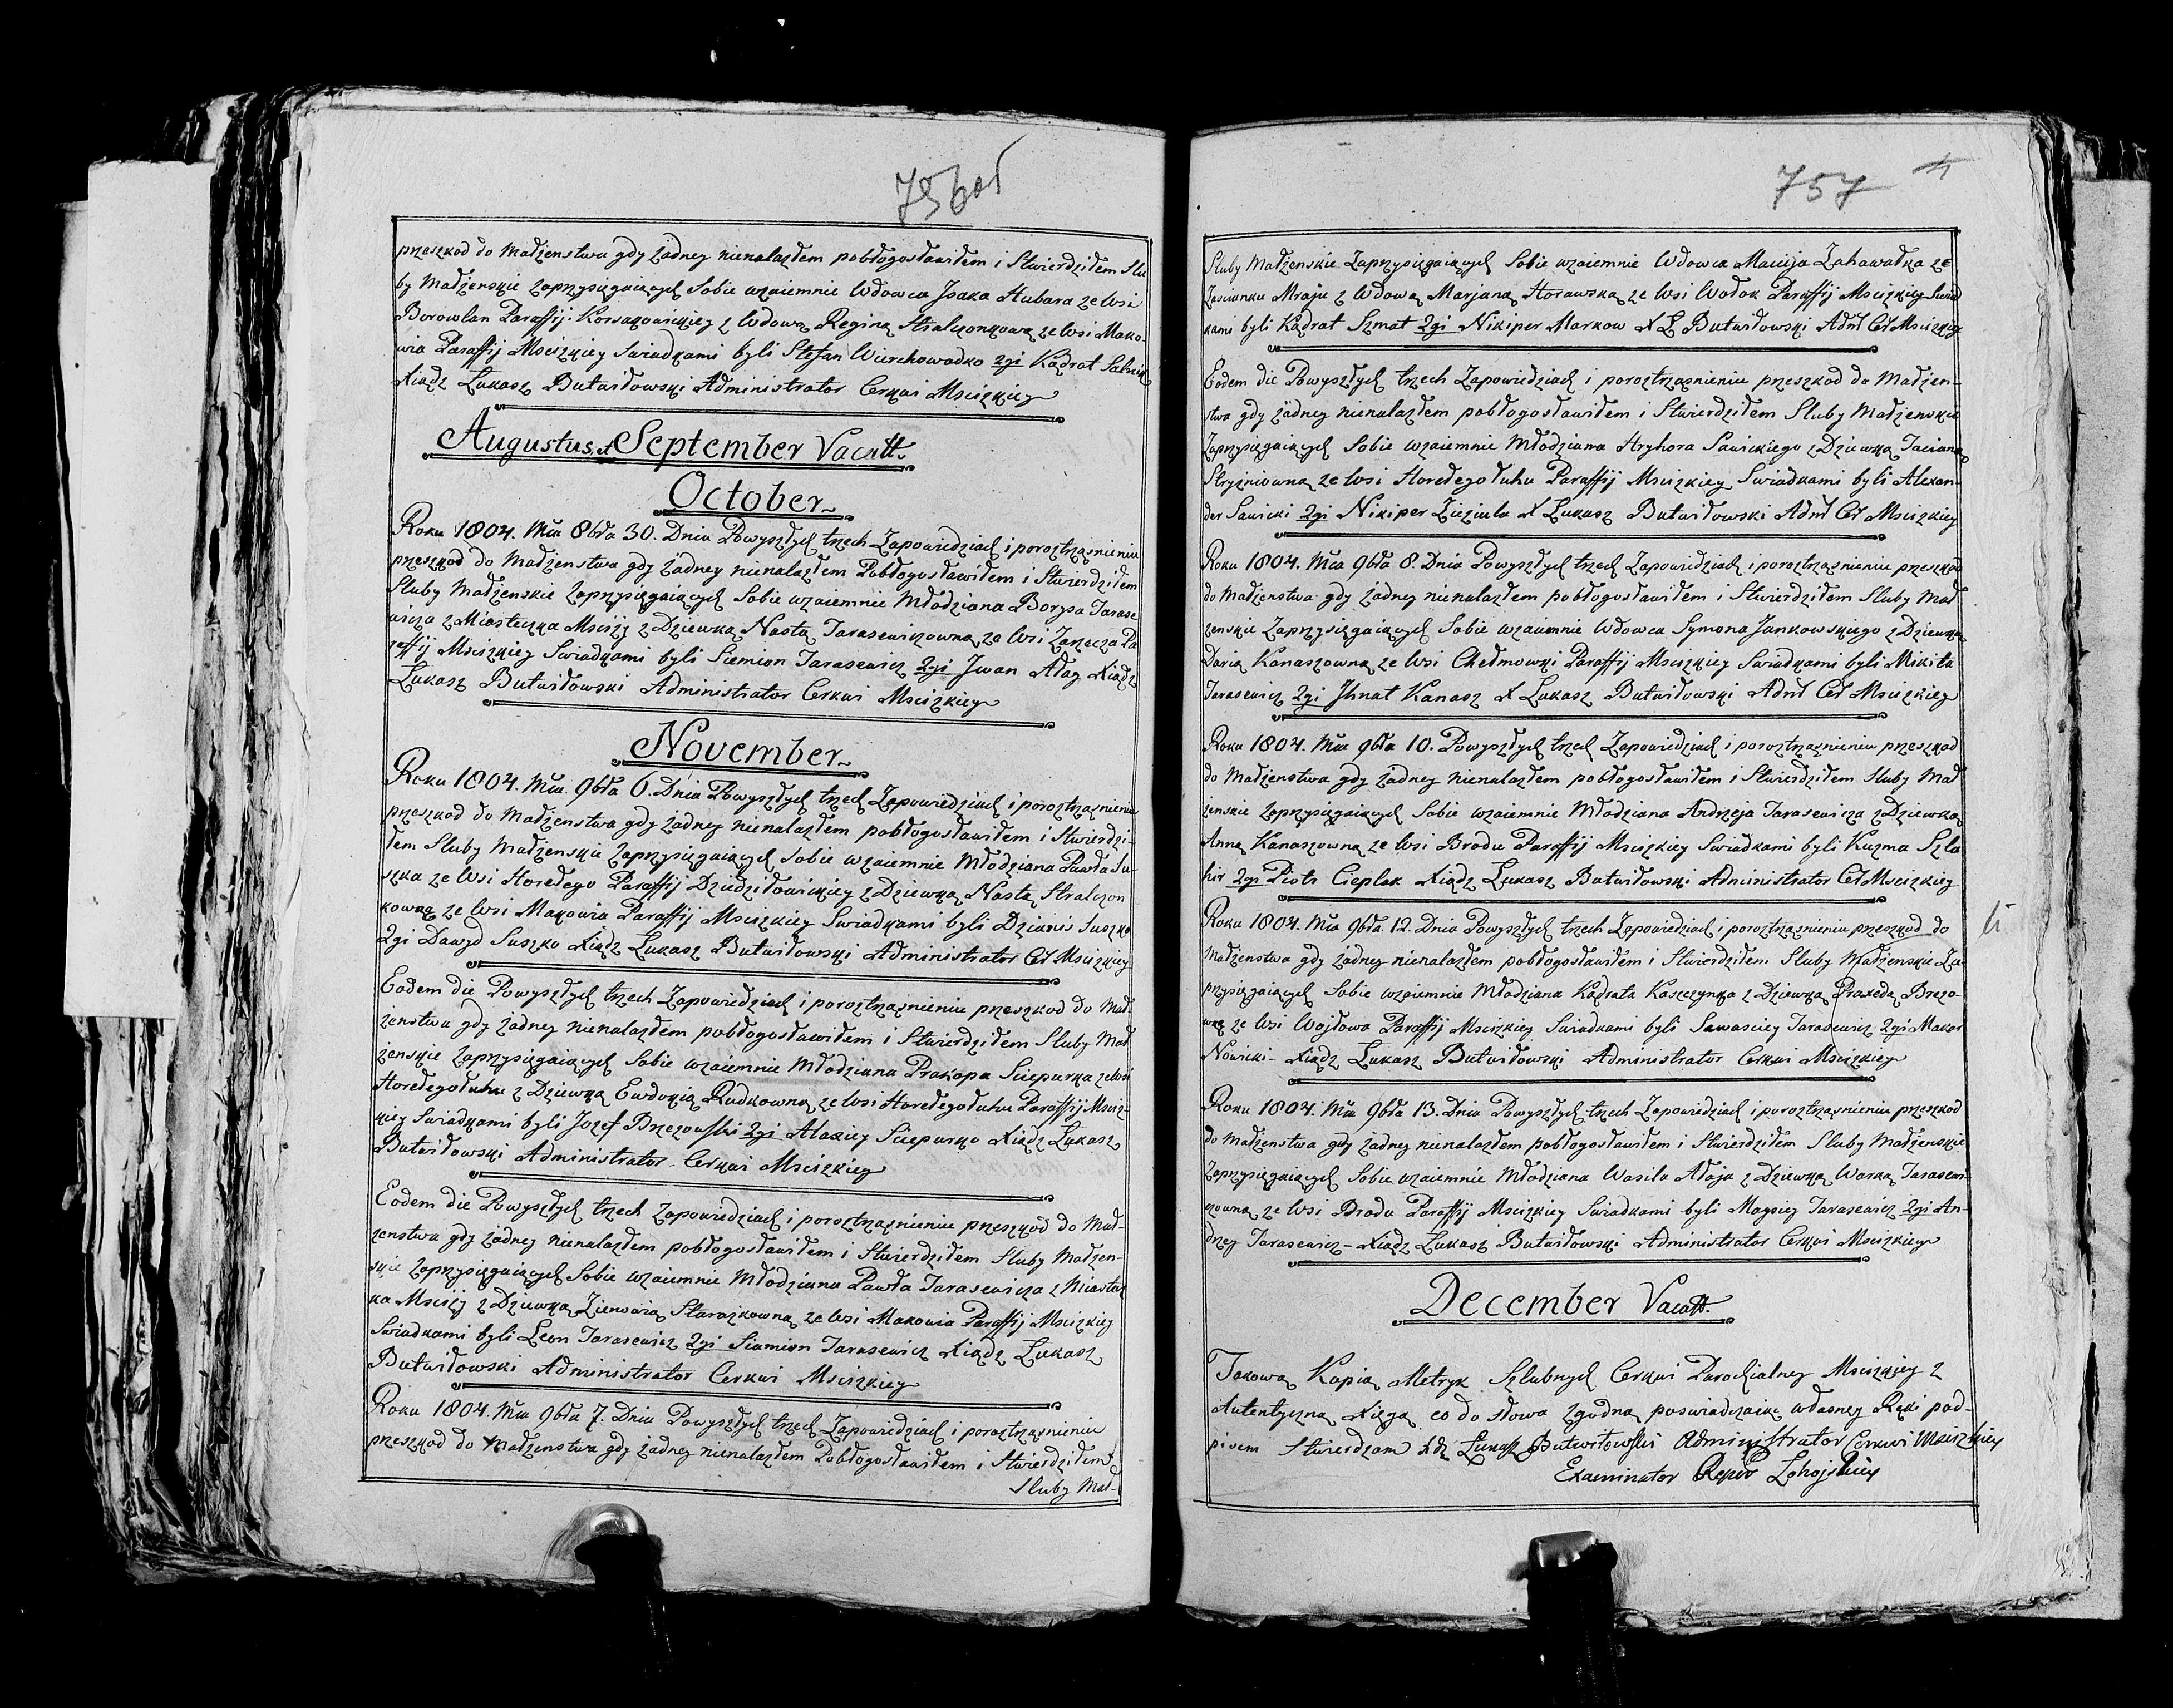 756об
przeszkod do Małżenstwa gdy żadney nienalazłem pobłogosławiłem i Stwierdziłem Slu
by Małżenskie Zaprzysięgaiących Sobie wzaiemnie Wdowca Jsaka Hubara ze Wsi
Borowlan Paraffij Korsakowickiey z Wdową Reginą Stralczonkową ze Wsi Mako-
wia Paraffij Msciżkiey Swiadkami byli Stefan Wierchowodko 2gi Kądrat Salnik
Xiądz Łukasz Butwiłowski Administrator Cerkwi Msciżkiey
Augustus, et September Vacatt.
October
Roku 1804. Mca 8bra 30. Dnia Powyszłych trzech Zapowiedziach i porostrząsnieniu
przeszkod do Małżenstwa gdy żadney nienalazłem Pobłogosławiłem i Stwierdziłem
Sluby Małżenskie Zaprzysięgaiących Sobie wzaiemnie Młodziana Borysa Tarase
wicza z Miasteczka Msciży z Dziewką Nastą Tarasewiczowną ze Wsi Zarzecza Pa
raffij Msciżkiey Swiadkami byli Siemion Tarasewicz 2gi Jwan Aday Xiądz
Łukasz Butwiłowski Administrator Cerkwi Msciżkiey
November
Roku 1804. Mca. 9bra 6. Dnia Powyszłych trzech Zapowiedziach i porostrząsnieniu
przeszkod do Małżenstwa gdy żadney nienalazłem pobłogosławiłem i Stwierdzi-
łem Sluby Małżenskie Zaprzysięgaiących Sobie wzaiemnie Młodziana Pawła Su-
szka ze Wsi Horełego Paraffij Dziedziłowickiey z Dziewką Nastą Stralczon
kowną ze Wsi Makowia Paraffij Msciżkiey Swiadkami byli Dzianis Suszko
2gi Dawyd Suszko Xiądz Łukasz Butwiłowski Administrator Cer Msciżkiey
Eodem die Powyszłych trzech Zapowiedziach i porostrząsnieniu przeszkod do Mał
żenstwa gdy żadney nienalazłem pobłogosławiłem i Stwierdziłem Sluby Mał
żenskie Zaprzysięgaiących Sobie wzaiemnie Młodziana Prakopa Sciepurka ze Wsi
Horełegołuhu z Dziewką Ewdokią Rudkowną ze Wsi Horełegołuhu Paraffij Msciż-
kiey Swiadkami byli Jozef Brzezowski 2gi Alaxiey Sciepurko Xiądz Łukasz
Butwiłowski Administrator Cerkwi Msciżkiey
Eodem die Powyszłych trzech Zapowiedziach i porostrząsnieniu przeszkod do Mał-
żenstwa gdy żadney nienalazłem pobłogosławiłem i Stwierdziłem Sluby Małżen-
skie Zaprzysięgaiących Sobie wzaiemnie Młodziana Pawła Tarasewicza z Miastecz
ka Msciży z Dziewką Zienowią Starażkowną ze Wsi Makowia Paraffij Msciżkiey
Swiadkami byli Leon Tarasewicz 2gi Siemion Tarasewicz Xiądz Łukasz
Butwiłowski Administrator Cerkwi Msciżkiey
Roku 1804. Mca 9bra 7. Dnia Powyszłych trzech Zapowiedziach i porostrząsnieniu
przeszkod do Małżenstwa gdy żadney nienalazłem Pobłogosławiłem i Stwierdziłem
Sluby Mał-
757
Sluby Małżenskie Zaprzysięgaiących Sobie wzaiemnie Wdowca Macieja Zahawałka ze
Zascianku Mraju z Wdową Marjaną Horawską ze Wsi Wołok Paraffij Msciżkiey Swiad
kami byli Kądrat Szmat 2gi Nikiper Markow X Ł Butwiłowski Admr Cer Msciżkiey
Eodem die Powyszłych trzech Zapowiedziach i porostrząsnieniu przeszkod do Małżen-
stwa gdy żadney nienalazłem pobłogosławiłem i Stwierdziłem Sluby Małżenskie
Zaprzysięgaiących Sobie wzaiemnie Młodziana Hryhora Sawickiego z Dziewką Tacianą
Stryzniowną ze Wsi Horełegołuhu Paraffij Msciżkiey Swiadkami byli Alexan-
der Sawicki 2gi Nikiper Zieziula X Łukasz Butwiłowski Admr Cer Msciżkiey
Roku 1804. Mca 9bra 8. Dnia Powyszłych trzech Zapowiedziach i porostrząsnieniu przeszkod
do Małżenstwa gdy żadney nienalazłem pobłogosławiłem i Stwierdziłem Sluby Mał
żenskie Zaprzysięgaiących Sobie wzaiemnie Wdowca Symona Jankowskiego z Dziewką
Darią Kanaszowną ze Wsi Chełmowki Paraffij Msciżkiey Swiadkami byli Mikita
Tarasewicz 2gi Jhnat Kanasz X Łukasz Butwiłowski Admr Cer Msciżkiey
Roku 1804. Mca 9bra 10. Powyszłych trzech Zapowiedziach i porostrząsnieniu przeszkod
do Małżenstwa gdy żadney nienalazłem pobłogosławiłem i Stwierdziłem Sluby Mał
żenskie Zaprzysięgaiących Sobie wzaiemnie Młodziana Andrzeja Tarasewicza z Dziewką
Anną Kanaszowną ze Wsi Brodu Paraffij Msciżkiey Swiadkami byli Kuzma Szla
hir 2gi Piotr Cieplak Xiądz Łukasz Butwiłowski Administrator Cer Msciżkiey
Roku 1804. Mca 9bra. 12. Dnia Powyszłych trzech Zapowiedziach i porostrząsnieniu przeszkod do
Małżenstwa gdy żadney nienalazłem pobłogosławiłem i Stwierdziłem Sluby Małżenskie Za-
przysięgaiących Sobie wzaiemnie Młodziana Kądrata Kaszczynka z Dziewką Praxedą Brezo-
wną ze Wsi Wojdowa Paraffij Msciżkiey Swiadkami byli Sawasciey Tarasewicz 2gi Makar
Nowicki - Xiądz Łukasz Butwiłowski Administrator Cerkwi Msciżkiey
Roku 1804. Mca 9bra 13. Dnia Powyszłych trzech Zapowiedziach i porostrząsnieniu przeszkod
do Małżenstwa gdy żadney nienalazłem pobłogosławiłem i Stwierdziłem Sluby Małżenskie
Zaprzysięgaiących Sobie wzaiemnie Młodziana Wasila Adaja z Dziewką Warką Tarasewi-
czowną ze Wsi Brodu Paraffij Msciżkiey Swiadkami byli Maysiey Tarasewicz 2gi An-
drzey Tarasewicz - Xiądz Łukasz Butwiłowski Administrator Cerkwi Msciżkiey
December Vacatt.
Takową Kopią Metryk Szlubnych Cerkwi Parochialney Msciżkiey z
Autentyczną Xięgą co do słowa zgodną poswiadczaiąc własney Ręki pod-
pisem Stwierdzam Xdz Łukasz Butwiłowski Administrator Cerkwi Msciżkiey
Examinator Łohojskiey